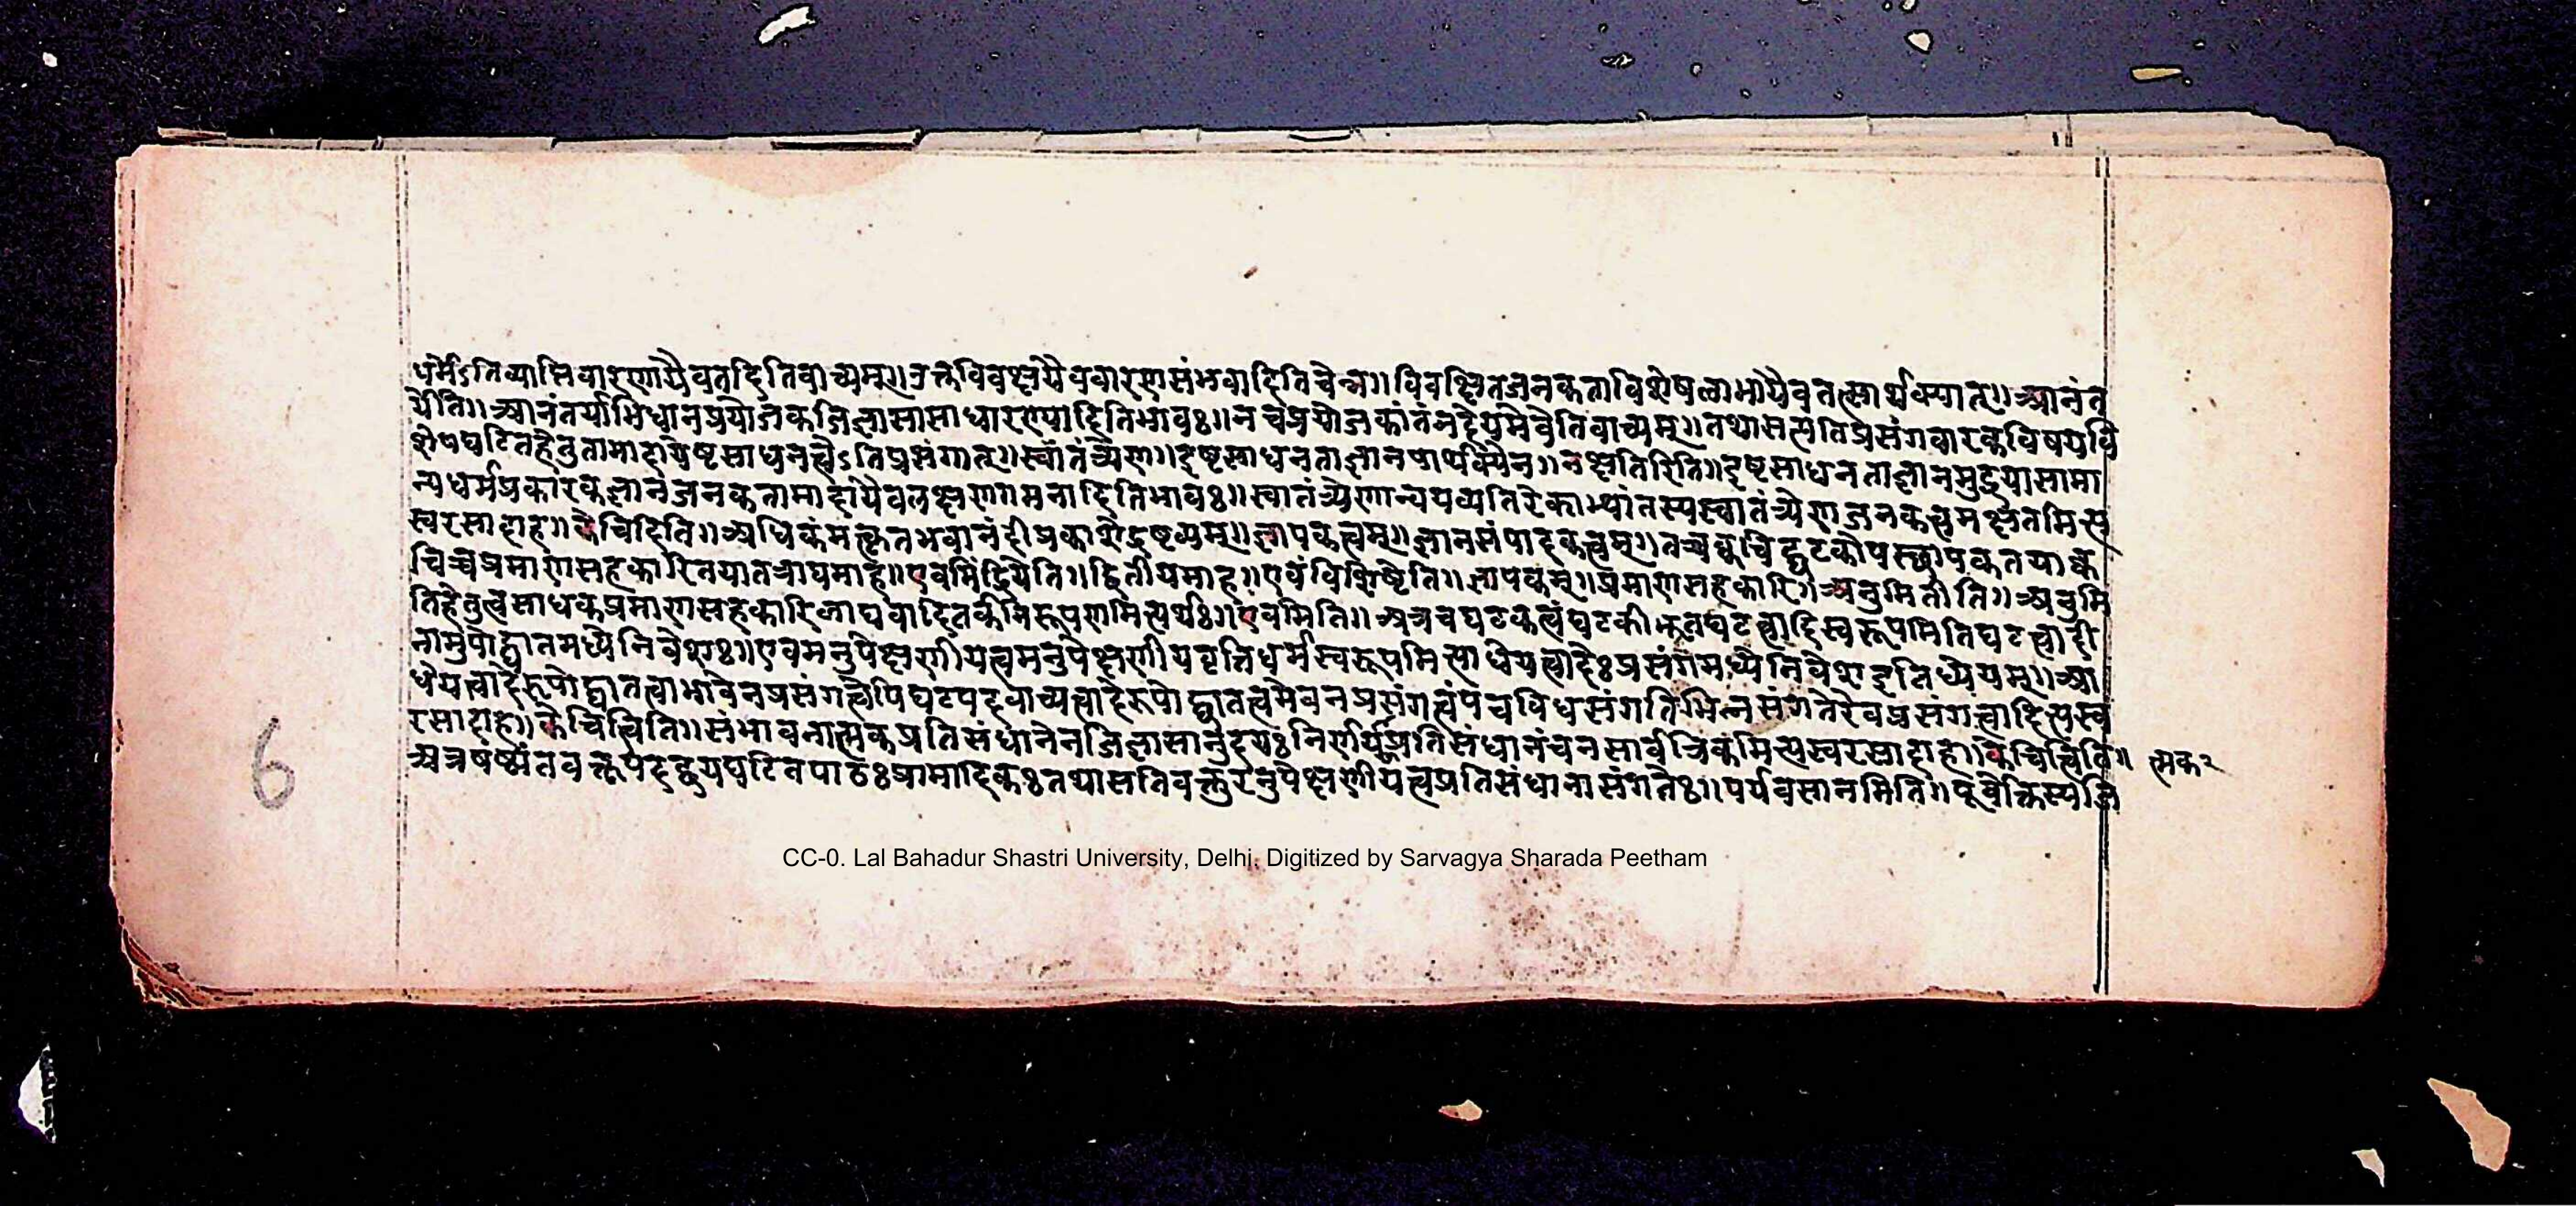 धर्मेऽतिव्याप्तिवारणायैवतदितिवाच्यम्॥उक्तविवक्षयैववारणासंभवादितिचेन्न॥विवक्षितजनकताविशेषलाभायैवतत्सार्थक्यात्॥आनंत
र्येति॥आनंतर्याभिधानप्रयोजकजिज्ञासासाधारण्यादितिभावः॥नचप्रयोजकांतंनदेयमेवेतिवाच्यम्॥तथासत्यतिप्रसंगवारकविषयवि
शेषघटितहेतुतामादायेष्टसाधनत्वेऽतिप्रसंगात्॥स्वातंत्र्येण॥इष्टसाधनताज्ञानपार्थक्येन॥नक्षतिरिति॥इष्टसाधनताज्ञानमुद्रयासामा
न्यधर्मप्रकारकज्ञानजनकतामादायैवलक्षणगमनादितिभावः॥स्वातंत्र्येणान्वयव्यतिरेकाभ्यांतस्यस्वातंत्र्येणजनकत्वमक्षतमित्य
स्वरसादाह॥केचिदिति॥अधिकंमत्कृतभवानंदीप्रकाशेद्रष्टव्यम्॥ज्ञापकत्वम्॥ज्ञानसंपादकत्वम्॥तच्चक्वचिद्घटकोपस्थापकतयाक्व
चिच्चप्रमाणसहकारितयातत्राद्यमाह॥एवमिंद्रियेति॥द्वितीयमाह॥एवंविशिष्टेति॥ज्ञापकम्॥प्रमाणसहकारि॥अनुमितीति॥अनुमि
तिहेतुत्वसाधकप्रमाणसहकारिलाघवादितर्कनिरूपणमित्यर्थः॥एवमिति॥अत्रचघटकत्वंघटकीभूतघटत्वादिस्वरूपमितिघटत्वादी
नामुपोद्घातमध्येनिवेशः॥एवमनुपेक्षणीयत्वमनुपेक्षणीयवृत्तिधर्मस्वरूपमित्याधेयत्वादेःप्रसंगमध्येनिवेशइतिध्येयम्॥आ
धेयत्वादेरुपोद्घातत्वाभावेनप्रसंगत्वेपिघटपदवाच्यत्वादेरुपोद्घातत्वमेवनप्रसंगत्वंपंचविधसंगतिभिन्नसंगतेरेवप्रसंगत्वादित्यस्व
रसादाह॥केचित्त्विति॥संभावनात्मकप्रतिसंधानेनजिज्ञासानुदयःनिर्णयप्रतिसंधानंचनसार्वत्रिकमित्यस्वरसादाह॥केचित्त्विति॥ त्मक२
अत्रषष्ठ्यंतवक्तृपदद्वयघटितपाठःप्रामादिकःतथासतिवक्तुरनुपेक्षणीयत्वप्रतिसंधानासंगतेः॥पर्यवसानमिति॥पूर्वोक्तस्यजि
6
CC-0. Lal Bahadur Shastri University, Delhi. Digitized by Sarvagya Sharada Peetham